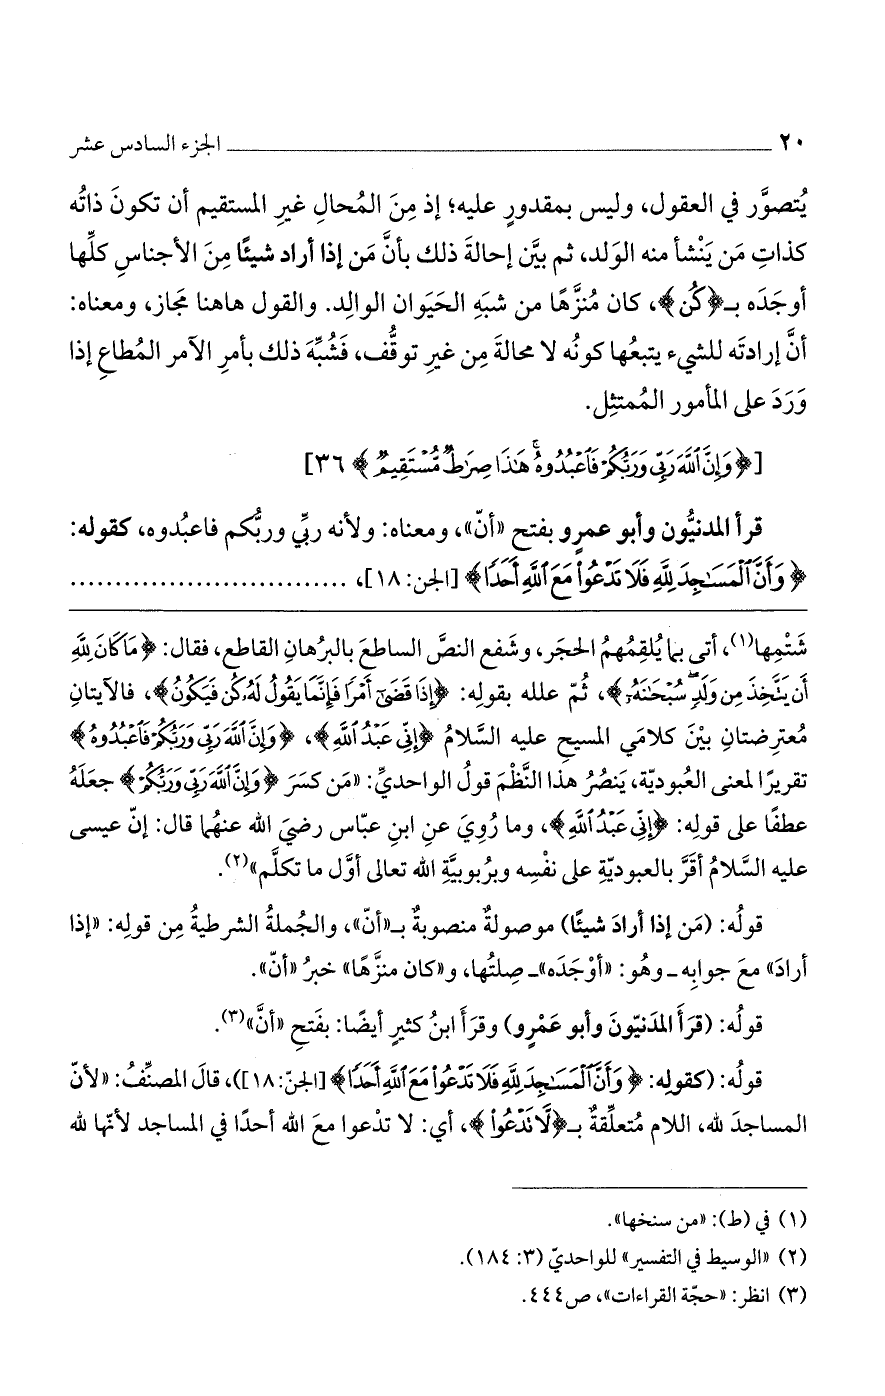 ٢٠ الجزء السادس عشر
يُتصوَّر في العقول، وليس بمقدورٍ عليه؛ إذ مِنَ المُحالِ غيرِ المستقيم أن تكونَ ذاتُه
كذاتِ مَن يَنْشأ منه الوَلد، ثم بيَّن إحالةَ ذلك بأنَّ مَن إذا أراد شيئًا مِنَ الأجناسِ كلِّها
أوجَدَه بـ﴿كُن﴾، كان مُنزَّهًا من شبَهِ الحَيَوان الوالِد. والقول هاهنا مَجاز، ومعناه:
أنَّ إرادتَه للشيء يتبعُها كونُه لا محالةَ مِن غيرِ توقُّف، فَشُبِّهَ ذلك بأمرِ الآمر المُطاعِ إذا
وَرَدَ على المأمور المُمتثِل.
[﴿وَإِنَّ ٱللَّهَ رَبِّى وَرَبُّكُمْ فَٱعْبُدُوهُ ۚ هَٰذَا صِرَٰطٌ مُّسْتَقِيمٌ﴾ ٣٦]
قرأ المدنيُّون وأبو عمرٍو بفتح «أنّ»، ومعناه: ولأنه ربِّي وربُّكم فاعبُدوه، كقوله:
﴿وَأَنَّ ٱلْمَسَٰجِدَ لِلَّهِ فَلَا تَدْعُوا۟ مَعَ ٱللَّهِ أَحَدًا﴾ [الجن: ١٨]، ..............................
شَتْمِها(١)، أتى بما يُلقِمُهمُ الحجَر، وشَفع النصَّ الساطعَ بالبرُهانِ القاطع، فقال: ﴿مَا كَانَ لِلَّهِ
أَن يَتَّخِذَ مِن وَلَدٍ ۖ سُبْحَٰنَهُۥٓ﴾، ثُمّ علله بقولِه: ﴿إِذَا قَضَىٰٓ أَمْرًا فَإِنَّمَا يَقُولُ لَهُۥ كُن فَيَكُونُ﴾، فالآيتانِ
مُعترِضتانِ بيْنَ كلامَي المسيحِ عليه السَّلامُ ﴿إِنِّى عَبْدُ ٱللَّهِ﴾، ﴿وَإِنَّ ٱللَّهَ رَبِّى وَرَبُّكُمْ فَٱعْبُدُوهُ﴾
تقريرًا لمعنى العُبوديّة، يَنصُرُ هذا النَّظْمَ قولُ الواحديِّ: «مَن كسَرَ ﴿وَإِنَّ ٱللَّهَ رَبِّى وَرَبُّكُمْ﴾ جعَلَهُ
عطفًا على قولِه: ﴿إِنِّى عَبْدُ ٱللَّهِ﴾، وما رُوِيَ عنِ ابنِ عبّاس رضيَ الله عنهُما قال: إنّ عيسى
عليه السَّلامُ أقَرَّ بالعبوديّةِ على نفْسِه وبرُبوبيَّةِ الله تعالى أوَّل ما تكلَّم»(٢).
قولُه: (مَن إذا أرادَ شيئًا) موصولةٌ منصوبةٌ بـ«أنّ»، والجُملةُ الشرطيةُ مِن قولِه: «إذا
أرادَ» معَ جوابِه ـ وهُو: «أوْجَدَه»ـ صِلتُها، و«كان منزَّهًا» خبرُ «أنّ».
قولُه: (قرَأَ المدَنيّونَ وأبو عَمْرٍو) وقرَأَ ابنُ كثيرٍ أيضًا: بفَتحِ «أنَّ»(٣).
قولُه: (كقولِه: ﴿وَأَنَّ ٱلْمَسَٰجِدَ لِلَّهِ فَلَا تَدْعُوا۟ مَعَ ٱللَّهِ أَحَدًا﴾ [الجنّ: ١٨])، قالَ المصنِّفُ: «لأنّ
المساجدَ لله، اللام مُتعلِّقةٌ بـ﴿لَّا تَدْعُوا۟﴾، أي: لا تدْعوا معَ الله أحدًا في المساجد لأنّها لله
(١) في (ط): «من سنخها».
(٢) «الوسيط في التفسير» للواحديّ (٣: ١٨٤).
(٣) انظر: «حجّة القراءات»، ص٤٤٤.